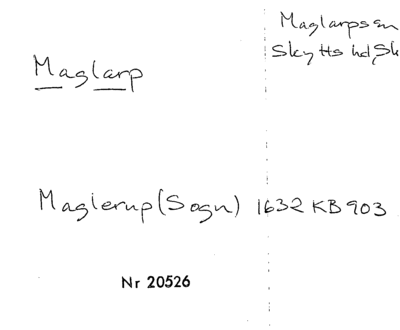 Maglarps sn
Skytts hd, Sk
Maglarp
Maglerup (Sogn) 1632 KB 903
Nr 20526